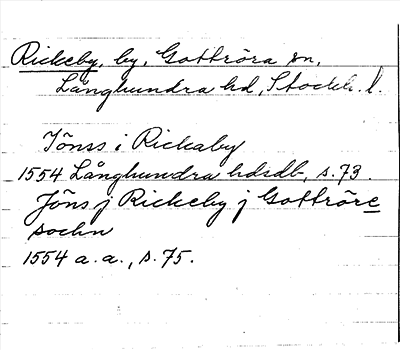 Rickeby, by, Gottröra sn,
Långhundra hd, Stockh. l.
Jönss i Rickaby
1554 Långhundra hdsdb, s. 73.
Jöns j Rickeby j Gottröre
sochn
1554 a. a., s. 75.